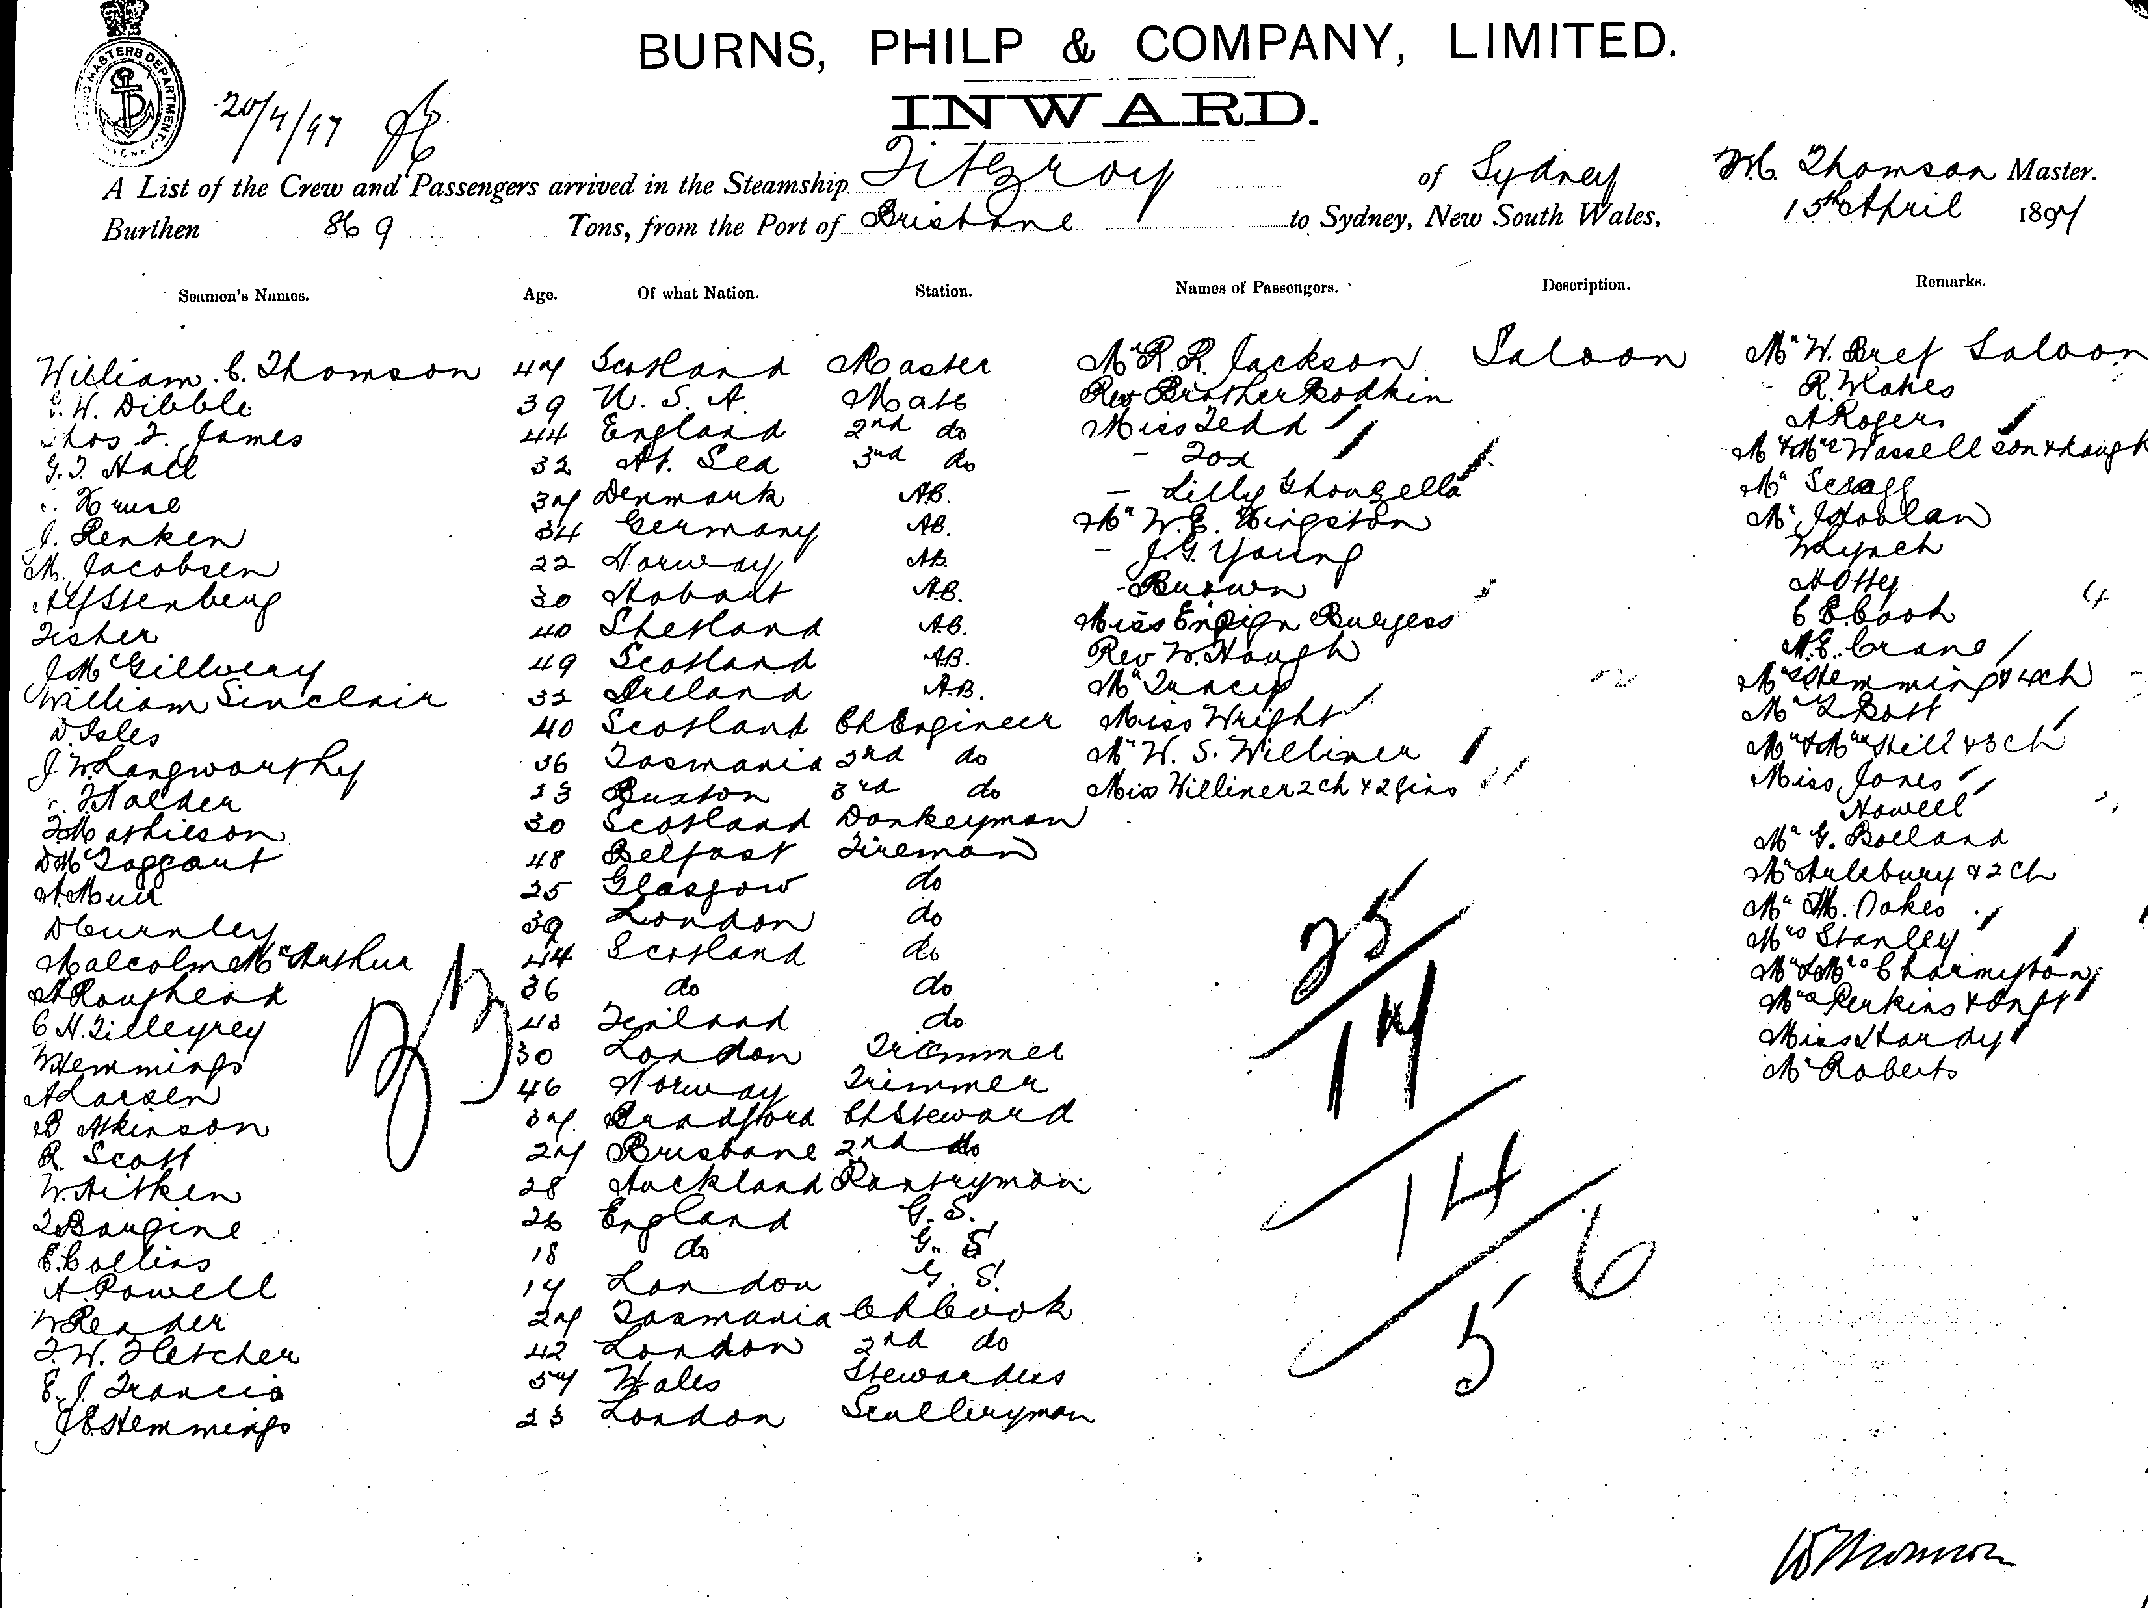 BURNS, PHILP & COMPANY, LIMITED.
INWARD.
20/4/97
A List of the Crew and Passengers arrived in the Steamship Fitzroy of Sydney W. Thomson Master.
Burthen 869 Tons, from the Port of Brisbane to Sydney, New South Wales, 15th April 1897
Seamen's Names. Age. Of what Nation. Station. Names of Passengers. Description. Remarks.
William. C. Thomson 47 Scotland Master Mr R. R. Jackson Saloon Mr W. Saloon
G. W. Dibble 39 U. S. A. Mate Rev Brother Bodkin R. Wakes
Thos F. James 44 England 2nd do Miss Tedd A Rogers
G. T. Hall 32 At. Sea 3rd do - Fox Mr & Mrs Wassell son & daugh
Kruse 37 Denmark AB. - Lilly Mr Scragg
J. Renken 34 Germany AB. Mr W. E. Kingston Mr Hoolan
M. Jacobsen 22 Norway AB. - J. G. Young W Lynch
30 Hobart A.B. - Brown A Otty
Fisher 40 Shetland A.B. Miss Ensign Burgess C E. Cook 4
J McGillvery 49 Scotland A.B. Rev W. Hough A. E. Crane
William Sinclair 32 Ireland A.B. Mr Francis Hemming & 4 ch
D. Isles 40 Scotland Ch Engineer Miss Wright Mr Bott
J W. Langworthy 36 Tasmania 2nd do Mr W. S. Williner Mr & Mrs Hill & 3 ch
Halder 23 Buxton 3rd do Miss Williner 2 ch & 2 Gins Miss Jones
Mathieson 30 Scotland Donkeyman Howell
D McTaggart 48 Belfast Fireman Mr G. Bolland
A. Muir 25 Glasgow do & 2 ch
D Curnley 39 London do Mr M. Oakes
Malcolm McArthur 44 Scotland do Mrs Stanley
A Roughead 36 do do Mr & Mrs Charmington
C H. Tilleyrey 43 Finland do Mrs Perkins & Inft
W Hemmings 30 London Trimmer Miss Hardy
A Larsen 46 Norway Trimmer Mr Roberts
B Atkinson 37 Bradford Ch Steward
R. Scott 27 Brisbane 2nd do
W. Aitken 28 Auckland Pantryman
26 England G. S.
E. Collins 18 do G. S
A. Powell 17 London G. S.
W Reader 27 Tasmania Ch Cook
F. W. Fletcher 42 London 2nd do
E. J. Francis 57 Wales Stewardess
J E Hemmings 23 London Sculleryman
33
25
17
14
5 6
W Thomson